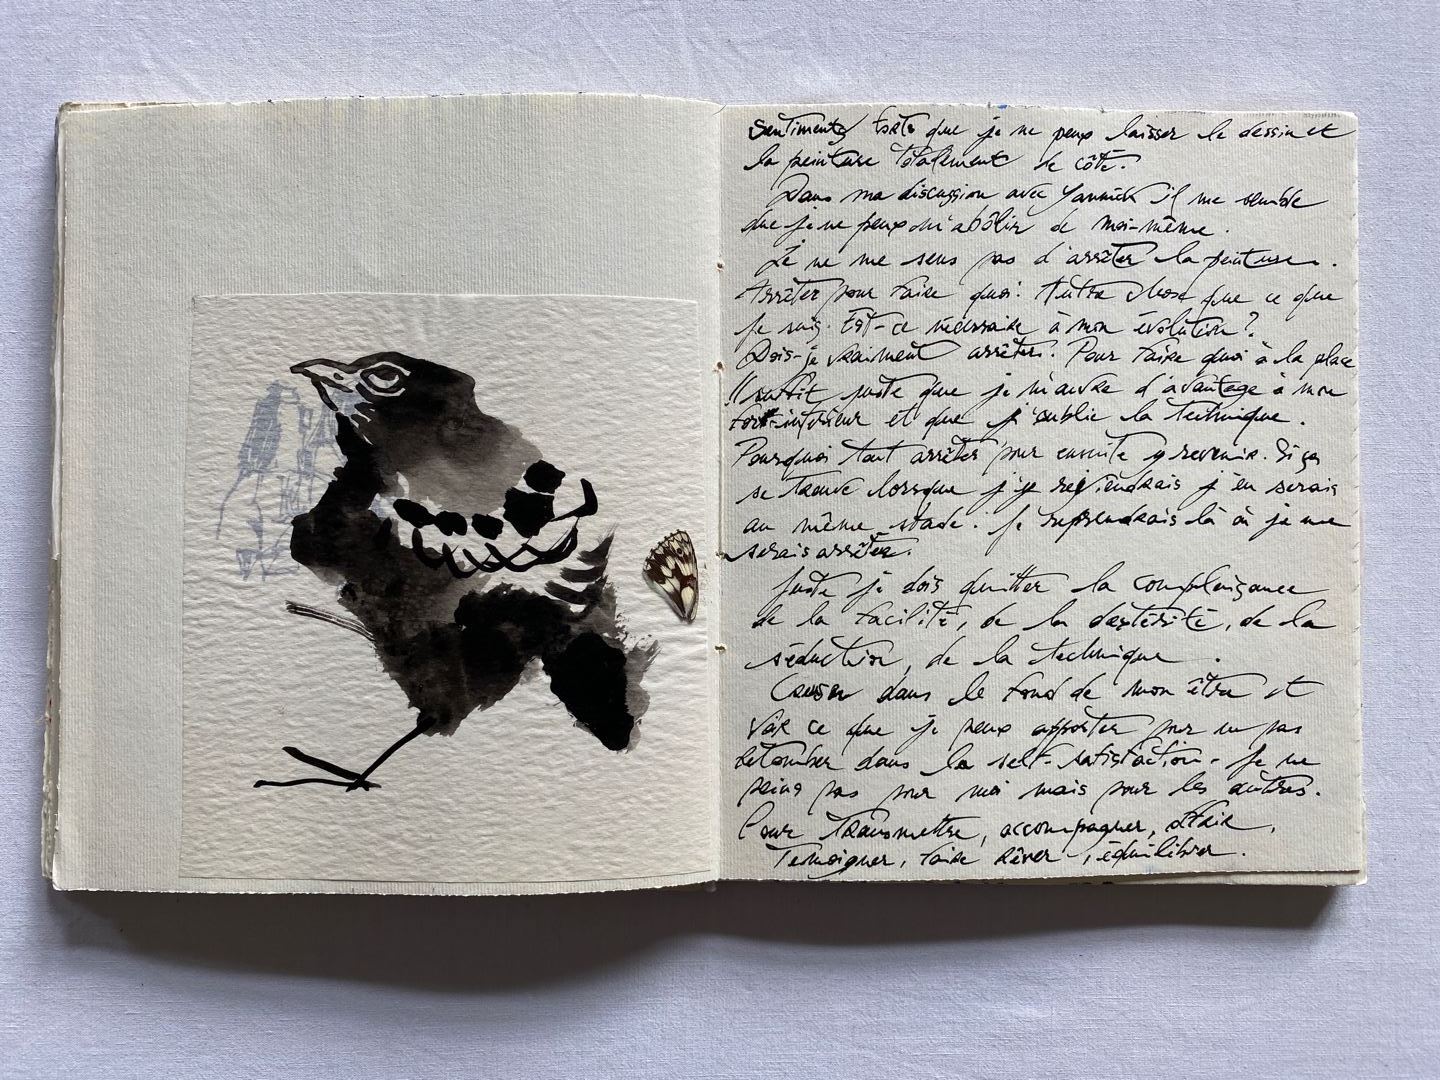 Sentiments forts que je ne peux laisser le dessin et
la peinture totalement de côté.
Dans ma discussion avec Yannick il me semble
que je ne peux m'abôlir de moi-même.
Je ne me sens pas d'arrêter la peinture.
Arrêter pour faire quoi. Autre chose que ce que
je suis. Est-ce nécessaire à mon évolution?
Dois-je vraiment arrêter. Pour faire quoi à la place
Il suffit juste que je m'ouvre d'avantage à mon
fort-intérieur et que j'oublie la technique.
Pourquoi tout arrêter pour ensuite y revenir. Si ça
se trouve lorsque j'y reviendrais j'en serais
au même stade. Je reprendrais là où je me
serais arrêter.
Juste je dois quitter la complaisance
de la facilité, de la dextérité, de la
séduction, de la technique.
Creuser dans le fond de mon être et
voir ce que je peux apporter pour ne pas
retomber dans la self-satisfaction. Je ne
peins pas pour moi mais pour les autres.
Pour transmettre, accompagner,
Temoigner, faire rêver, équilibrer.